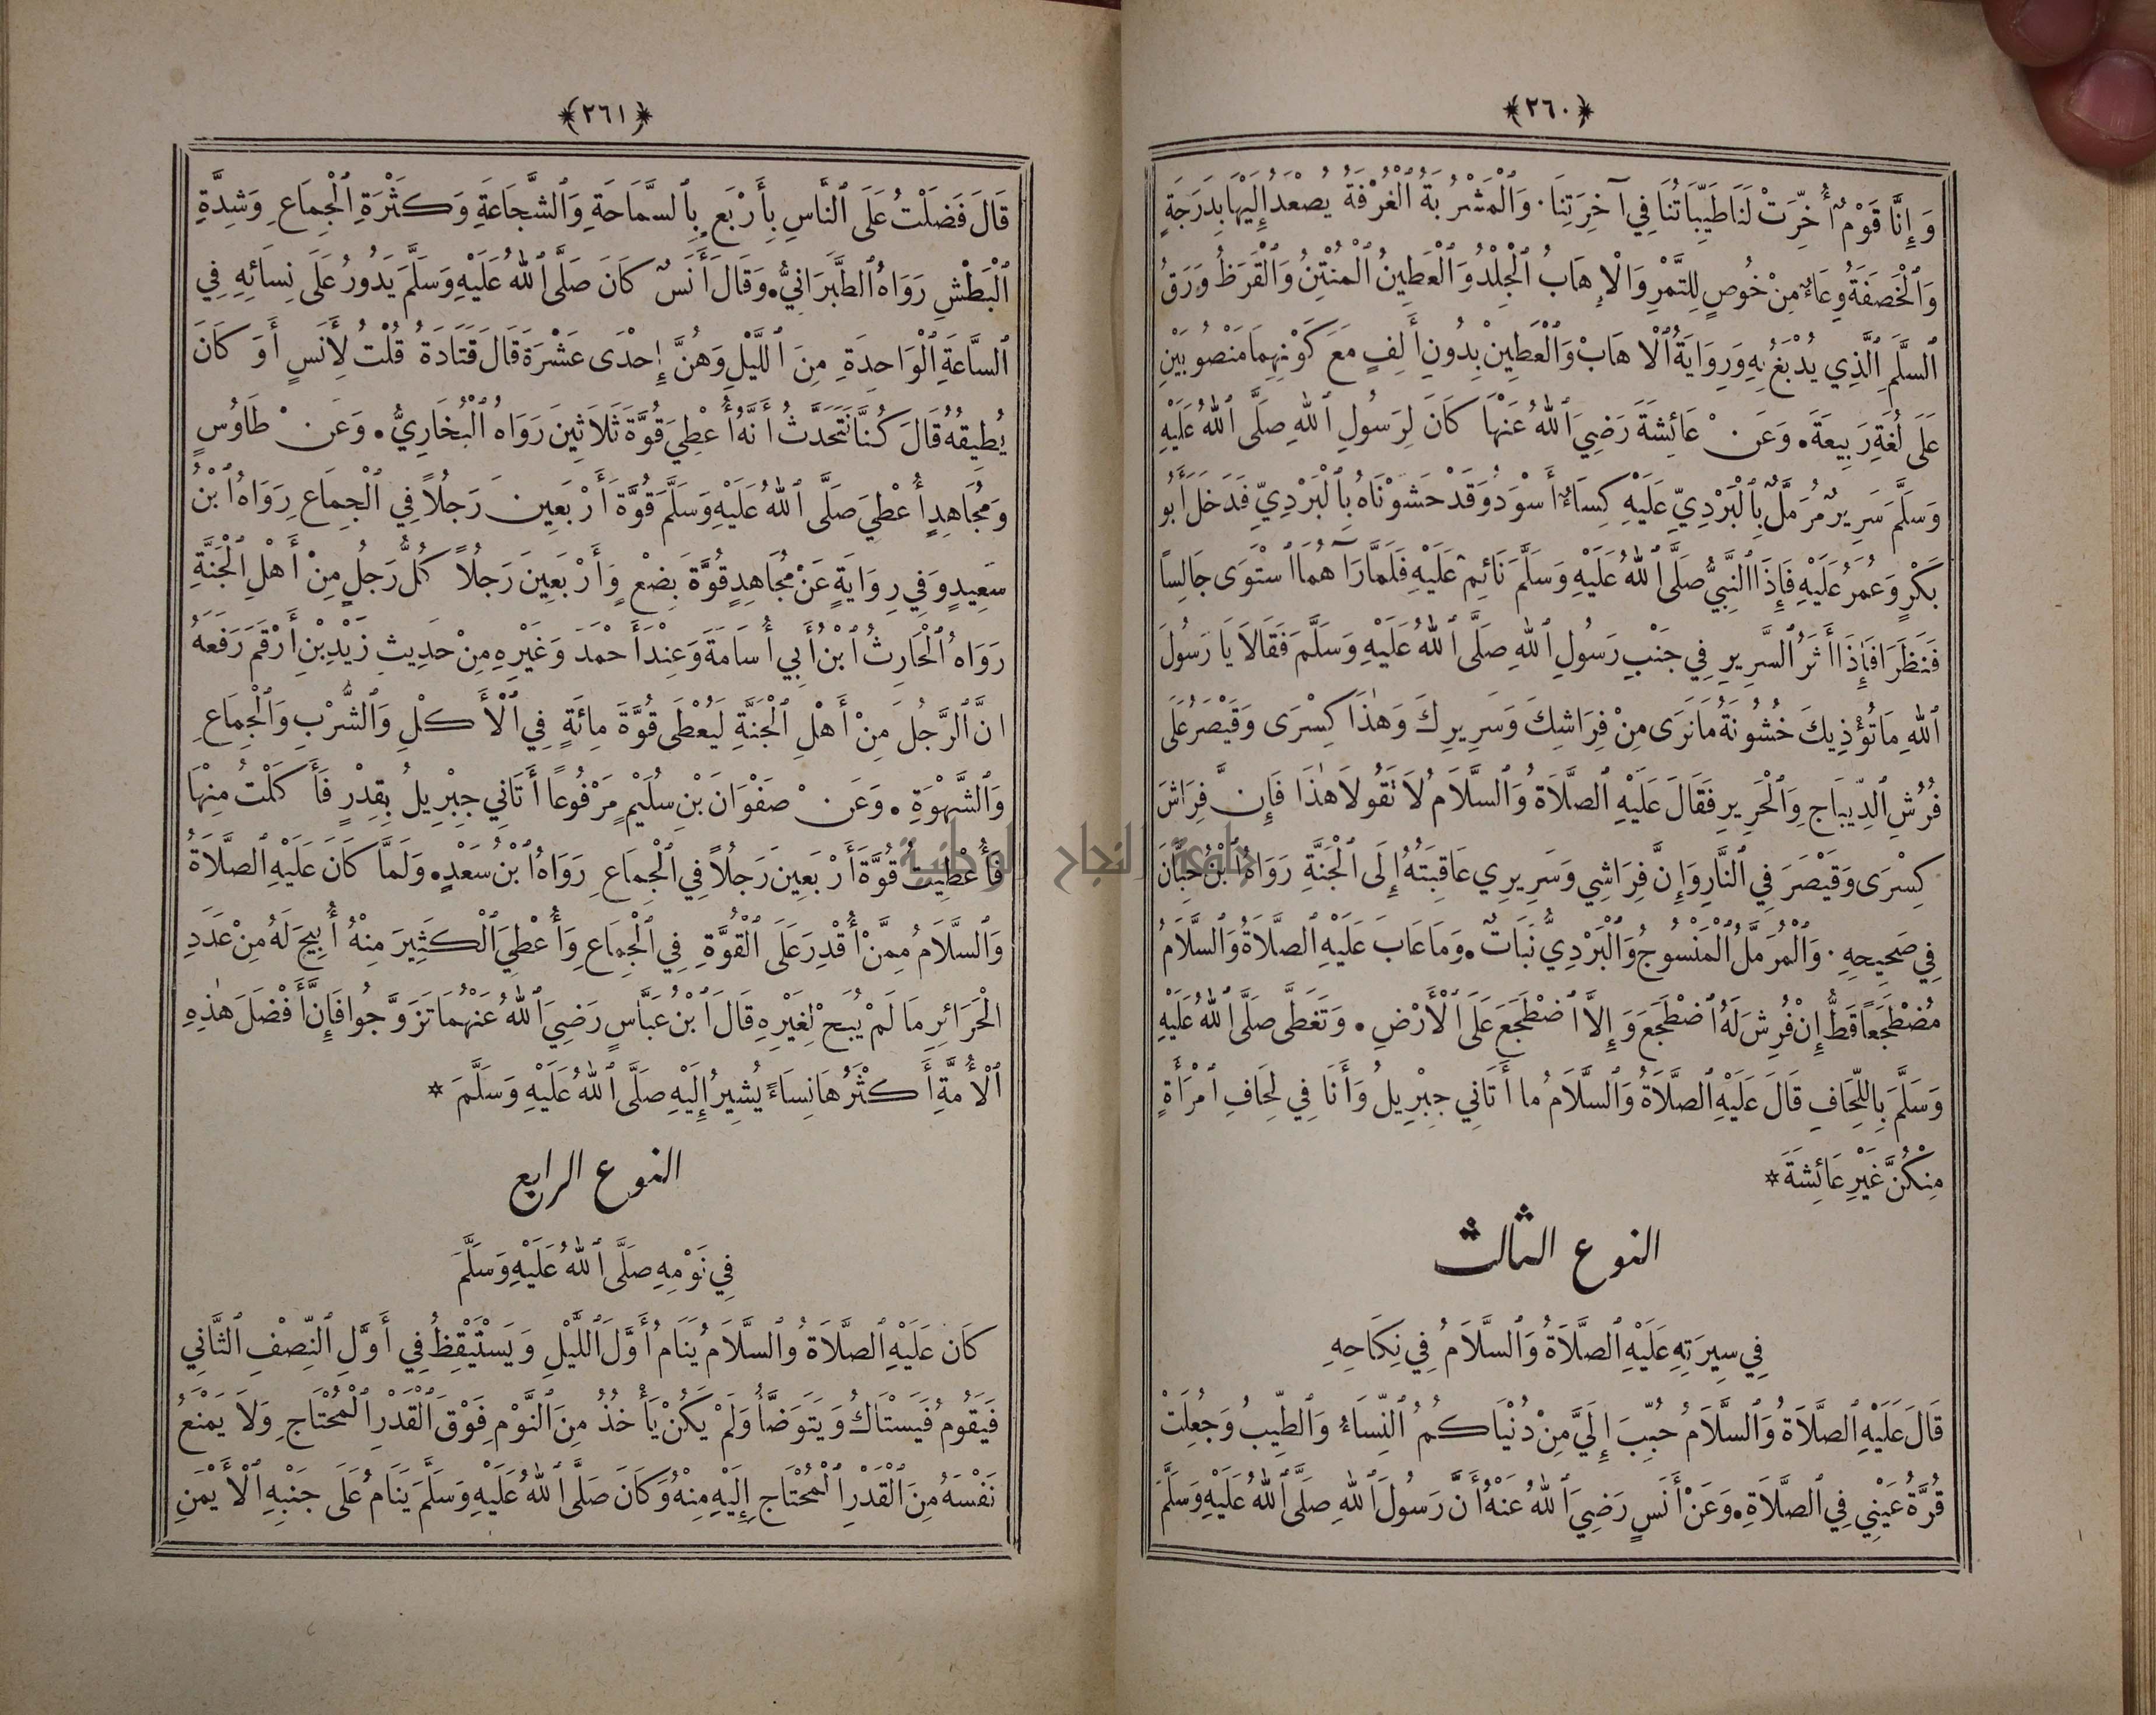 ﴿٢٦٠﴾
وَإِنَّا قَوْمٌ أُخِّرَتْ لَنَا طَيِّبَاتُنَا فِي آخِرَتِنَا. وَٱلْمَشْرُبَةُ ٱلْغُرْفَةُ يُصْعَدُ إِلَيْهَا بِدَرَجَةٍ
وَٱلْخَصَفَةُ وِعَاءٌ مِنْ خُوصٍ لِلتَّمْرِ وَالْإِهَابُ ٱلْجِلْدُ وَٱلْعَطِينُ ٱلْمُنْتِنُ وَٱلْقَرَظُ وَرَقُ
ٱلسَّلَمِ ٱلَّذِي يُدْبَغُ بِهِ وَرِوَايَةُ ٱلْاهَابْ وَٱلْعَطِينْ بِدُونِ أَلِفٍ مَعَ كَوْنِهِمَا مَنْصُوبَيْنِ
عَلَى لُغَةِ رَبِيعَةَ. وَعَنْ عَائِشَةَ رَضِيَ ٱللهُ عَنْهَا كَانَ لِرَسُولِ ٱللهِ صَلَّى ٱللهُ عَلَيْهِ
وَسَلَّمَ سَرِيرٌ مُرَمَّلٌ بِٱلْبَرْدِيِّ عَلَيْهِ كِسَاءٌ أَسْوَدُ وَقَدْ حَشَوْنَاهُ بِٱلْبَرْدِيِّ فَدَخَلَ أَبُو
بَكْرٍ وَعُمَرُ عَلَيْهِ فَإِذَا ٱلنَّبِيُّ صَلَّى ٱللهُ عَلَيْهِ وَسَلَّمَ نَائِمٌ عَلَيْهِ فَلَمَّا رَآهُمَا ٱسْتَوَى جَالِسًا
فَنَظَرَا فَإِذَا أَثَرُ ٱلسَّرِيرِ فِي جَنْبِ رَسُولِ ٱللهِ صَلَّى ٱللهُ عَلَيْهِ وَسَلَّمَ فَقَالاَ يَا رَسُولَ
ٱللهِ مَا تُؤْذِيكَ خُشُونَةُ مَا نَرَى مِنْ فِرَاشِكَ وَسَرِيرِكَ وَهٰذَا كِسْرَى وَقَيْصَرُ عَلَى
فُرُشِ ٱلدِّيبَاجِ وَٱلْحَرِيرِ فَقَالَ عَلَيْهِ ٱلصَّلاَةُ وَٱلسَّلاَمُ لاَ تَقُولاَ هٰذَا فَإِنَّ فِرَاشَ
كِسْرَى وَقَيْصَرَ فِي ٱلنَّارِ وَإِنَّ فِرَاشِي وَسَرِيرِي عَاقِبَتُهُ إِلَى ٱلْجَنَّةِ رَوَاهُ ٱبْنُ حِبَّانَ
فِي صَحِيحِهِ. وَٱلْمُرَمَّلُ ٱلْمَنْسُوجُ وَٱلْبَرْدِيُّ نَبَاتٌ. وَمَا عَابَ عَلَيْهِ ٱلصَّلاَةُ وَٱلسَّلاَمُ
مُضْطَجَعًا قَطُّ إِنْ فُرِشَ لَهُ ٱضْطَجَعَ وَإِلاَّ ٱضْطَجَعَ عَلَى ٱلْأَرْضِ. وَتَغَطَّى صَلَّى ٱللهُ عَلَيْهِ
وَسَلَّمَ بِاللِّحَافِ قَالَ عَلَيْهِ ٱلصَّلاَةُ وَٱلسَّلاَمُ ما أَتَانِي جِبْرِيلُ وَأَنَا فِي لِحَافِ ٱمْرَأَةٍ
مِنْكُنَّ غَيْرِ عَائِشَةَ *
النوع الثالث
فِي سِيرَتِهِ عَلَيْهِ ٱلصَّلاَةُ وَٱلسَّلاَمُ فِي نِكَاحِهِ
قَالَ عَلَيْهِ ٱلصَّلاَةُ وَٱلسَّلاَمُ حُبِّبَ إِلَيَّ مِنْ دُنْيَاكُمُ ٱلنِّسَاءُ وَٱلطِّيبُ وَجُعِلَتْ
قُرَّةُ عَيْنِي فِي ٱلصَّلاَةِ. وَعَنْ أَنَسٍ رَضِيَ ٱللهُ عَنْهُ أَنَّ رَسُولَ ٱللهِ صَلَّى ٱللهُ عَلَيْهِ وَسَلَّمَ
﴿٢٦١﴾
قَالَ فَضَلْتُ عَلَى ٱلنَّاسِ بِأَرْبَعٍ بِٱلسَّمَاحَةِ وَٱلشَّجَاعَةِ وَكَثْرَةِ ٱلْجِمَاعِ وَشِدَّةِ
ٱلْبَطْشِ رَوَاهُ ٱلطَّبَرَانِيُّ. وَقَالَ أَنَسٌ كَانَ صَلَّى ٱللهُ عَلَيْهِ وَسَلَّمَ يَدُورُ عَلَى نِسَائِهِ فِي
ٱلسَّاعَةِ ٱلْوَاحِدَةِ مِنَ ٱللَّيْلِ وَهُنَّ إِحْدَى عَشْرَةَ قَالَ قَتَادَةُ قُلْتُ لِأَنَسٍ أَوَ كَانَ
يُطِيقُهُ قَالَ كُنَّا نَتَحَدَّثُ أَنَّهُ أُعْطِيَ قُوَّةَ ثَلاَثِينَ رَوَاهُ ٱلْبُخَارِيُّ. وَعَنْ طَاوُسٍ
وَمُجَاهِدٍ أُعْطِيَ صَلَّى ٱللهُ عَلَيْهِ وَسَلَّمَ قُوَّةَ أَرْبَعِينَ رَجُلاً فِي ٱلْجِمَاعِ رَوَاهُ ٱبْنُ
سَعِيدٍ وَفِي رِوَايَةٍ عَنْ مُجَاهِدٍ قُوَّةَ بِضْعٍ وَأَرْبَعِينَ رَجُلاً كُلُّ رَجُلٍ مِنْ أَهْلِ ٱلْجَنَّةِ
رَوَاهُ ٱلْحَارِثُ ٱبْنُ أَبِي أُسَامَةَ وَعِنْدَ أَحْمَدَ وَغَيْرِهِ مِنْ حَدِيثِ زَيْدِ بْنِ أَرْقَمَ رَفَعَهُ
انَّ ٱلرَّجُلَ مِنْ أَهْلِ ٱلْجَنَّةِ لَيُعْطَى قُوَّةَ مِائَةٍ فِي ٱلْأَكْلِ وَٱلشُّرْبِ وَٱلْجِمَاعِ
وَٱلشَّهْوَةِ. وَعَنْ صَفْوَانَ بْنِ سُلَيْمٍ مَرْفُوعًا أَتَانِي جِبْرِيلُ بِقِدْرٍ فَأَكَلْتُ مِنْهَا
فَأُعْطِيتُ قُوَّةَ أَرْبَعِينَ رَجُلاً فِي ٱلْجِمَاعِ رَوَاهُ ٱبْنُ سَعْدٍ. وَلَمَّا كَانَ عَلَيْهِ ٱلصَّلاَةُ
وَٱلسَّلاَمُ مِمَّنْ أُقْدِرَ عَلَى ٱلْقُوَّةِ فِي ٱلْجِمَاعِ وَأُعْطِيَ ٱلْكَثِيرَ مِنْهُ أُبِيحَ لَهُ مِنْ عَدَدِ
ٱلْحَرَائِرِ مَا لَمْ يُبَحْ لِغَيْرِهِ قَالَ ٱبْنُ عَبَّاسٍ رَضِيَ ٱللهُ عَنْهُمَا تَزَوَّجُوا فَإِنَّ أَفْضَلَ هٰذِهِ
ٱلْأُمَّةِ أَكْثَرُهَا نِسَاءً يُشِيرُ إِلَيْهِ صَلَّى ٱللهُ عَلَيْهِ وَسَلَّمَ *
النوع الرابع
فِي نَوْمِهِ صَلَّى ٱللهُ عَلَيْهِ وَسَلَّمَ
كَانَ عَلَيْهِ ٱلصَّلاَةُ وَٱلسَّلاَمُ يَنَامُ أَوَّلَ ٱللَّيْلِ وَيَسْتَيْقِظُ فِي أَوَّلِ ٱلنِّصْفِ ٱلثَّانِي
فَيَقُومُ فَيَسْتَاكُ وَيَتَوَضَّأُ وَلَمْ يَكُنْ يَأْخُذُ مِنَ ٱلنَّوْمِ فَوْقَ ٱلْقَدْرِ ٱلْمُحْتَاجِ وَلاَ يَمْنَعُ
نَفْسَهُ مِنَ ٱلْقَدْرِ ٱلْمُحْتَاجِ إِلَيْهِ مِنْهُ وَكَانَ صَلَّى ٱللهُ عَلَيْهِ وَسَلَّمَ يَنَامُ عَلَى جَنْبِهِ ٱلْأَيْمَنِ
جامعة النجاح الوطنية